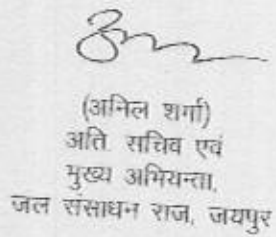 (अनिल शर्मा)
अति. सचिव एवं
मुख्य अभियन्ता,
जल संसाधन राज. जयपुर